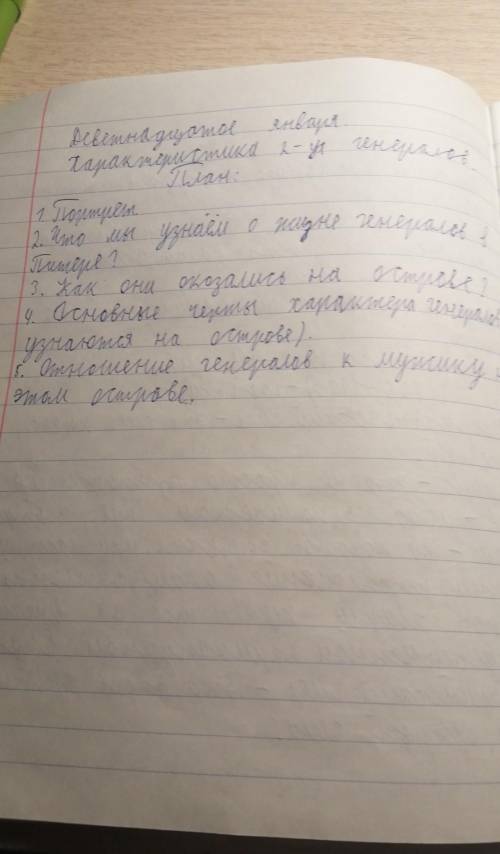 Деветнадцатое января.
Характеристика 2-ух генералов.
План:
1. Портрет.
2. Что мы узнаём о жизне генералов в
Питере?
3. Как они оказались на острове?
4. Основные черты характера генералов
узнаются на острове).
5. Отношение генералов к мужику
этом острове.